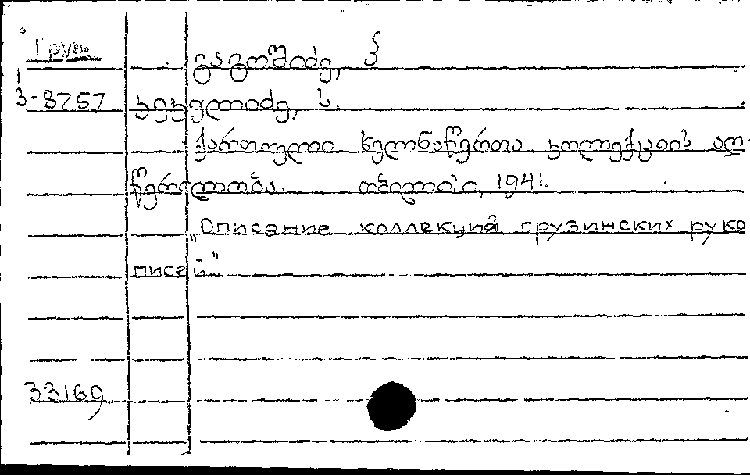 Груз.
გაგოშიძე, ვ
3-8757 კეკელიძე, ს.
ქართული ხელნაწერთა კოლექციის აღ-
წერილობა. თბილისი, 1941.
„Описание коллекций грузинских руко
писей"
33169